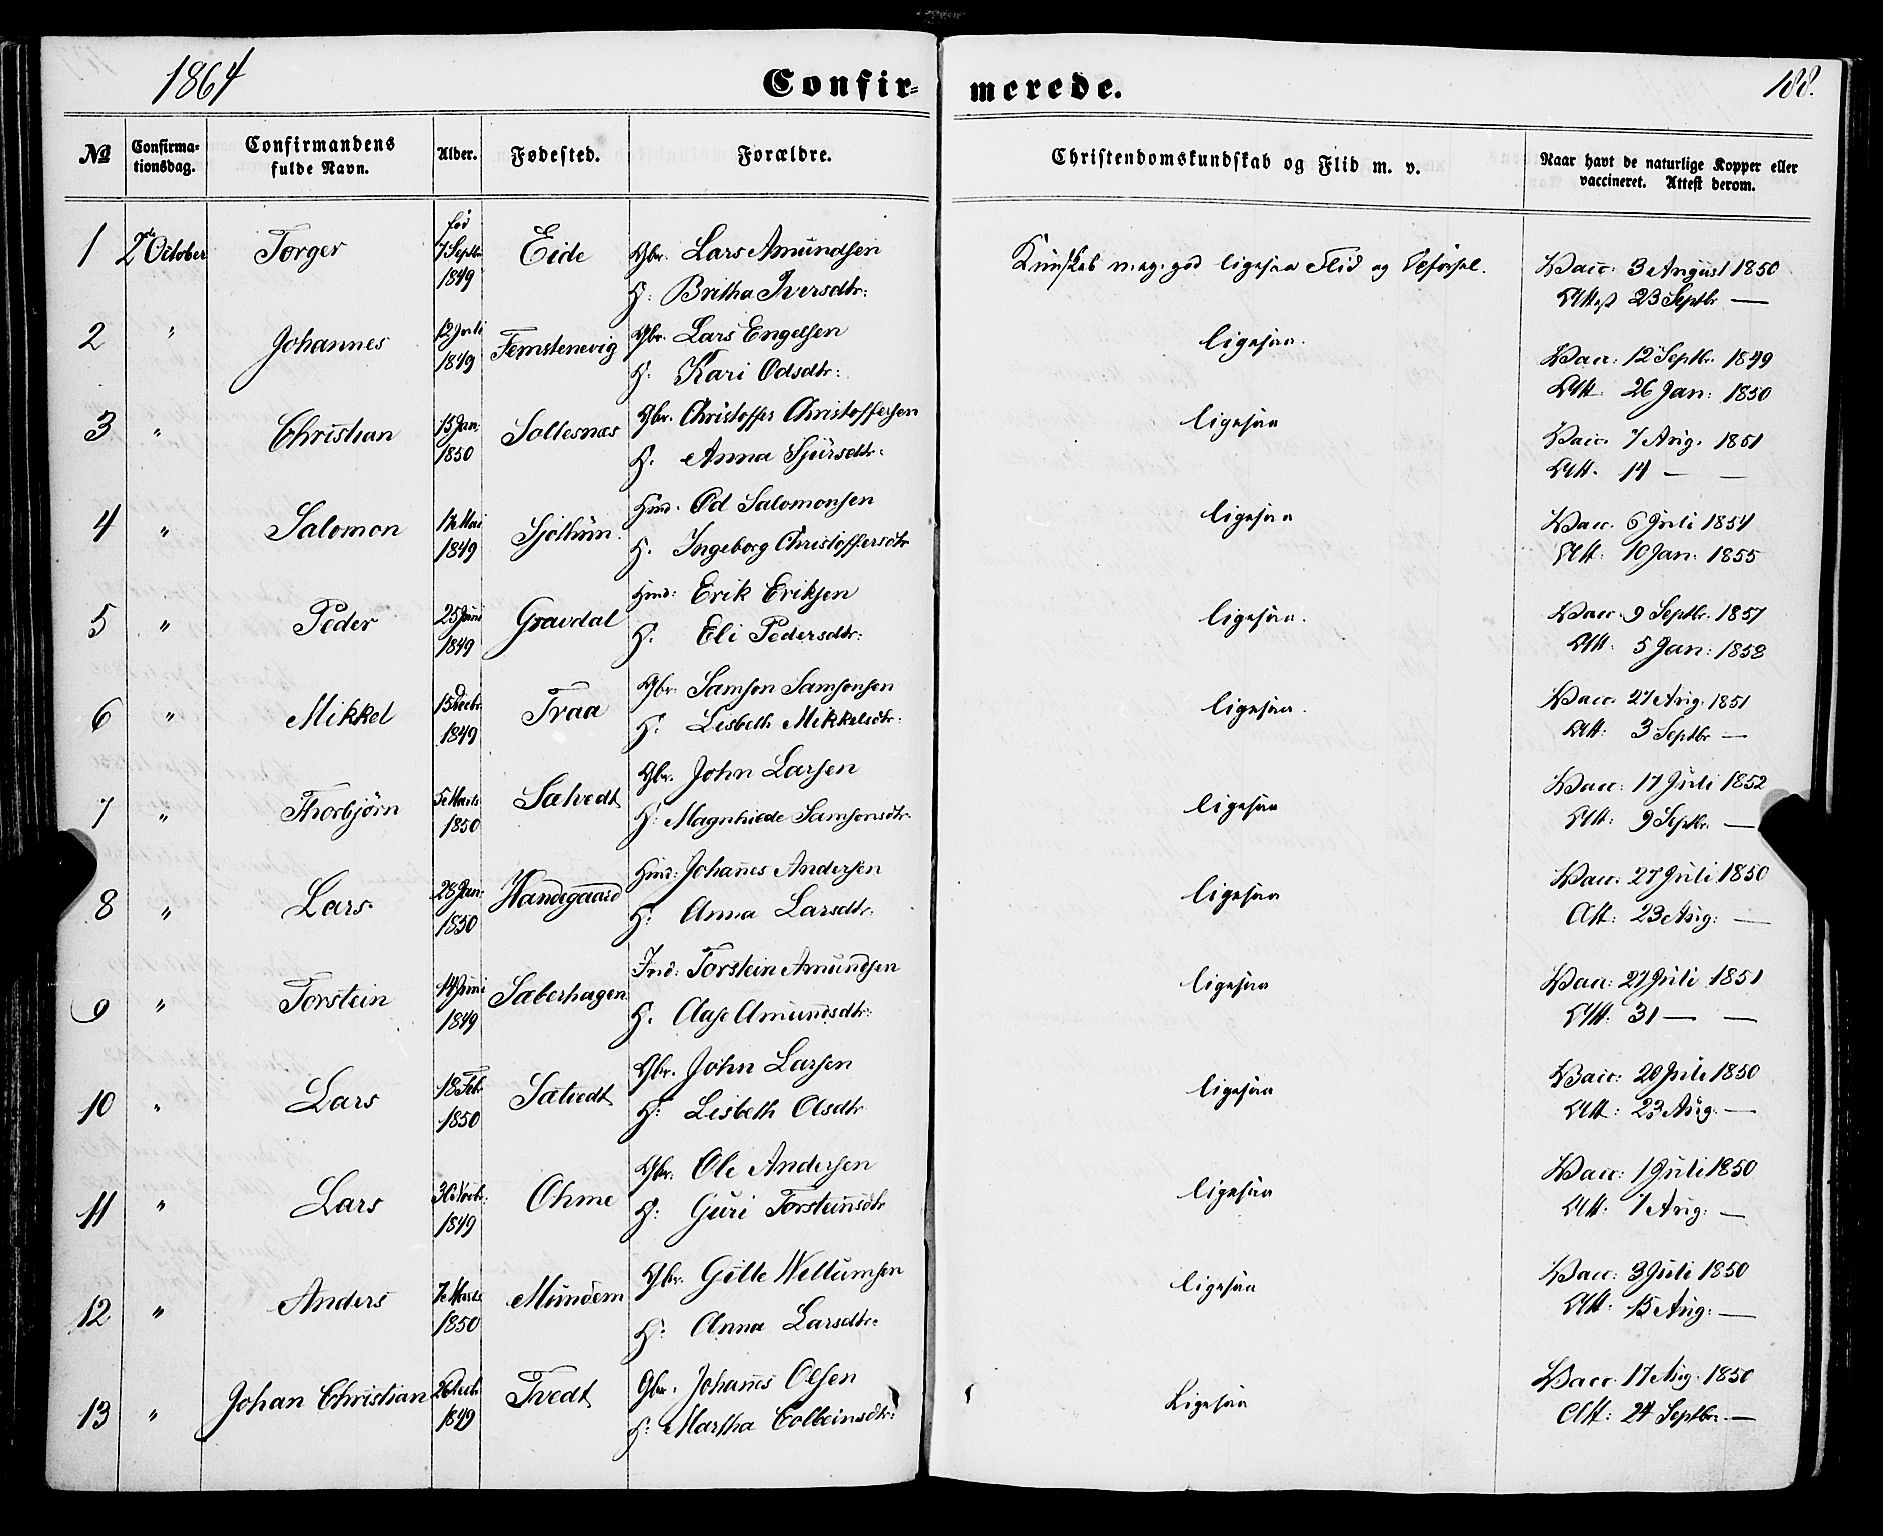 1864
Confir-
merede.
188.
No
Confirma-
tionsdag.
Confirmandens
fulde Navn.
Alder.
Fødested.
Forældre.
Christendomskundskab og Flid m. v.
Naar havt de naturlige Kopper eller
vaccineret. Attest derom.
1 2de October Torger fød 7 Septbr 1849 Eide Gbr. Lars Amundsen
H: Britha Iversdtr:
Kundskab meg: god ligesaa Flid og Opførsel.
Vacc: 3 August 1850
Attest 23 Septbr —
2 " Johannes 12 Juli 1849 Femstenevig Gbr. Lars Engelsen
H: Kari Odsdtr:
ligesaa.
Vacc: 12 Septbr. 1849
Att. 26 Jan: 1850
3 " Christian 15 Jan: 1850 Soltesnæs Gbr. Christoffer Christoffersen
H. Anna Sjursdtr:
ligesaa
Vacc. 7 Aug. 1851
Att. 14 — —
4 " Salomon 1849 Hmd. Od Salomonsen
H. Ingeborg Christoffersdtr
ligesaa
Vacc. 6 Juli 1854
Att: 10 Jan: 1855
5 " Peder 25 Juni 1849 Gravdal Hmd: Erik Eriksen
H. Eli Pedersdtr:
ligesaa.
Vacc. 9 Septbr. 1857
Att. 5 Jan: 1858
6 " Mikkel 15 Decbr. 1849 Traa Gbr. Samson Samsonsen
H: Lisbeth Mikkelsdtr:
ligesaa.
Vacc. 27 Aug. 1851
Att: 3 Septbr —
7 " Thorbjørn 5 Marts 1850 Sætvedt Gbr. John Larsen
H: Magnhilde Samsonsdtr.
ligesaa
Vacc: 17 Juli 1852
Att: 9 Septbr. —
8 " Lars 28 Jan: 1850 Wandegaard Hmd: Johanes Andersen
H: Anna Larsdtr:
ligesaa
Vacc. 27 Juli 1850
Att: 23 Aug: —
9 " Torstein 14 Juni 1849 Saberhagen Ind: Torstein Amundsen
H. Aase Amundsdtr:
ligesaa
Vacc: 27 Juli 1851
Att: 31 — —
10 " Lars 18 Feb. 1850 Sætvedt Gbr. John Larsen
H: Lisbeth Olsdtr
ligesaa
Vacc: 20 Juli 1850
Att: 23 Aug: —
11 " Lars 30 Novbr. 1849 Ohme Gbr. Ole Andersen
H: Guri Torsteinsdtr
ligesaa
Vacc: 1 Juli 1850
Att: 7 Aug: —
12 " Anders 7 Marts 1850 Mundem Gbr. Gitle Wellumsen
H: Anna Larsdtr:
ligesaa
Vacc: 3 Juli 1850
Att. 15 Aug: —
13 " Johan Christian 26 Decbr. 1849 Tvedt Gbr. Johanes Olsen
H: Martha Colbeinsdtr:
Ligesaa
Vacc. 17 Aug. 1850
Att: 24 Septbr. —